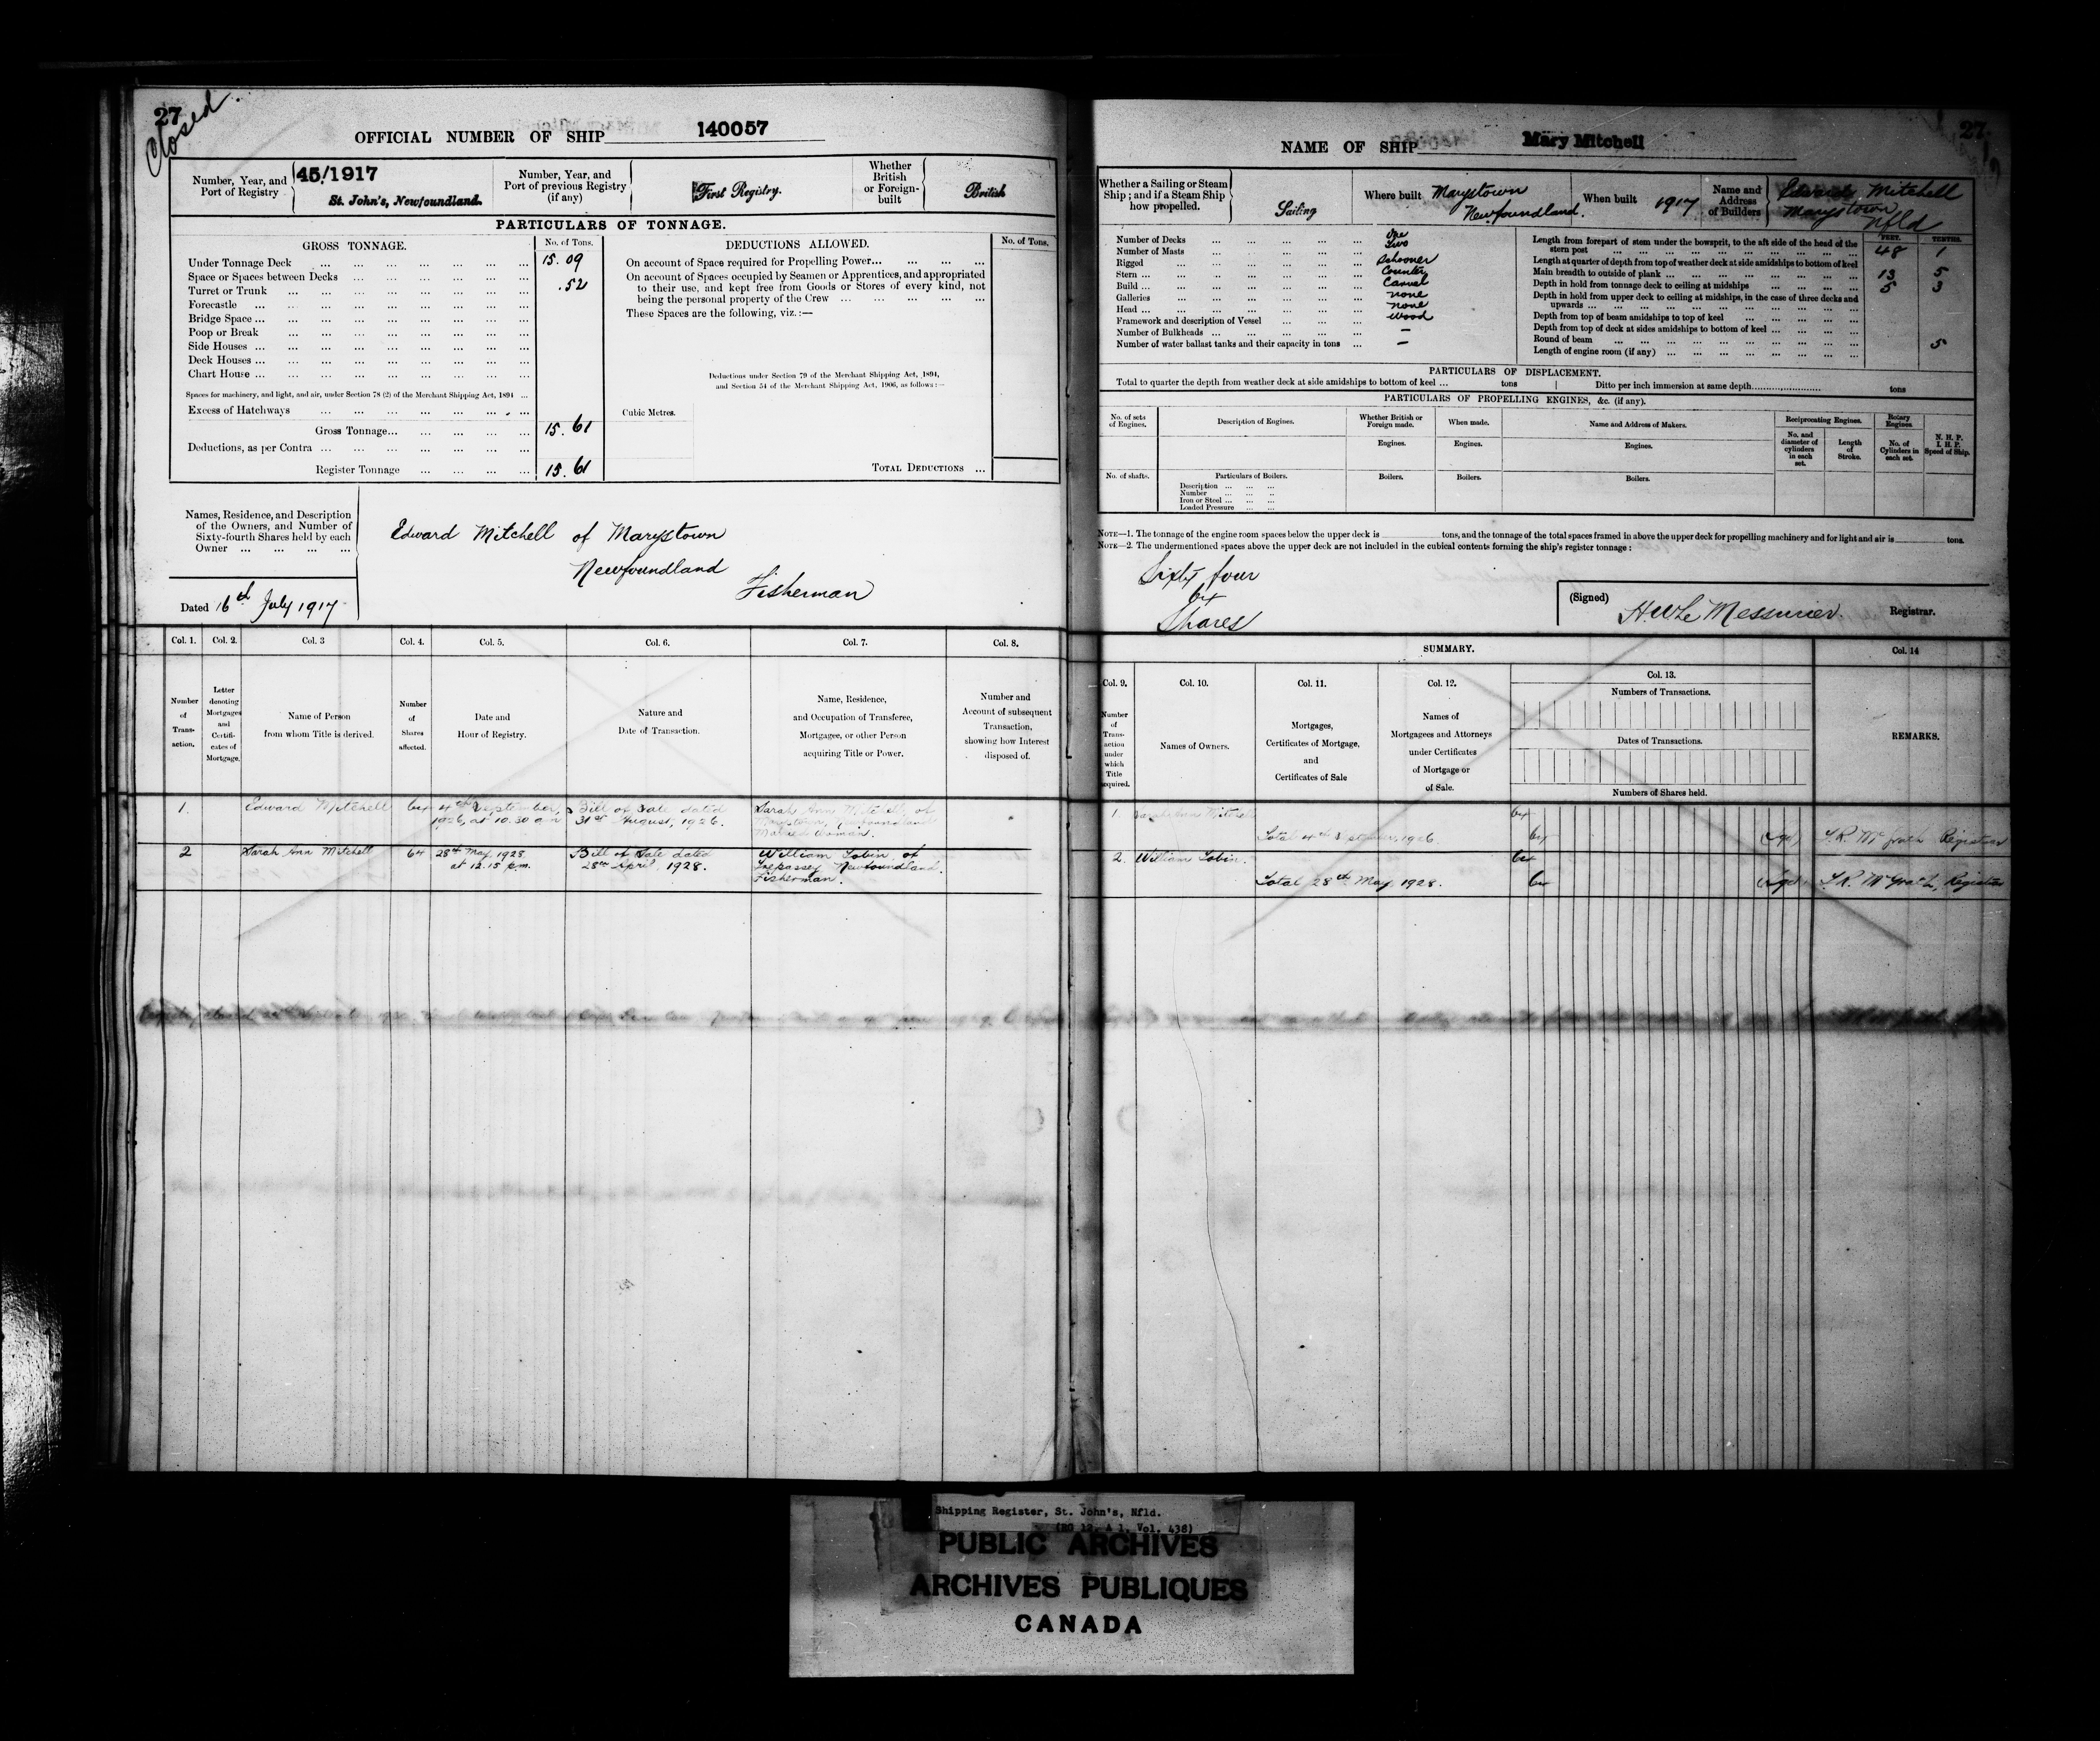 27
Closed
OFFICIAL NUMBER OF SHIP 140057
Number, Year, and Port of Registry
45/1917
St. John's, Newfoundland.
Number, Year, and Port of previous Registry (if any)
First Registry.
Whether British or Foreign-built
British
PARTICULARS OF TONNAGE.
GROSS TONNAGE.
No. of Tons.
DEDUCTIONS ALLOWED.
No. of Tons.
Under Tonnage Deck ... 15.09
Space or Spaces between Decks ... .52
Turret or Trunk ...
Forecastle ...
Bridge Space ...
Poop or Break ...
Side Houses ...
Deck Houses ...
Chart House ...
Spaces for machinery, and light, and air, under Section 78 (2) of the Merchant Shipping Act, 1894 ...
Excess of Hatchways ...
Gross Tonnage... 15.61
Deductions, as per Contra ...
Register Tonnage ... 15.61
On account of Space required for Propelling Power...
On account of Spaces occupied by Seamen or Apprentices, and appropriated
to their use, and kept free from Goods or Stores of every kind, not
being the personal property of the Crew ...
These Spaces are the following, viz.:—
Deductions under Section 79 of the Merchant Shipping Act, 1894,
and Section 54 of the Merchant Shipping Act, 1906, as follows:—
Cubic Metres.
TOTAL DEDUCTIONS ...
Names, Residence, and Description
of the Owners, and Number of
Sixty-fourth Shares held by each
Owner ...
Edward Mitchell of Marystown
Newfoundland
Fisherman
Dated 16th July 1917
Col. 1. Col. 2. Col. 3 Col. 4. Col. 5. Col. 6. Col. 7. Col. 8.
Number of Trans-action.
Letter denoting Mortgages and Certifi-cates of Mortgage.
Name of Person from whom Title is derived.
Number of Shares affected.
Date and Hour of Registry.
Nature and Date of Transaction.
Name, Residence, and Occupation of Transferee, Mortgagee, or other Person acquiring Title or Power.
Number and Account of subsequent Transaction, showing how Interest disposed of.
1. Edward Mitchell 64 4th September, 1926, at 10.30 am Bill of Sale dated 31st August, 1926. Sarah Ann Mitchell of Marystown, Newfoundland Married Woman.
2 Sarah Ann Mitchell 64 28th May, 1928 at 12.15 p.m. Bill of Sale dated 28th April, 1928. William Tobin, of Trepassey Newfoundland. Fisherman.
27
NAME OF SHIP Mary Mitchell
Whether a Sailing or Steam Ship; and if a Steam Ship how propelled.
Sailing
Where built Marystown Newfoundland.
When built 1917
Name and Address of Builders
Edward Mitchell
Marystown
Nfld
Number of Decks ... One
Number of Masts ... Two
Rigged ... Schooner
Stern ... Counter
Build ... Carvel
Galleries ... none
Head ... none
Framework and description of Vessel ... wood
Number of Bulkheads ... —
Number of water ballast tanks and their capacity in tons ... —
FEET. TENTHS.
Length from forepart of stem under the bowsprit, to the aft side of the head of the
stern post ... 48 1
Length at quarter of depth from top of weather deck at side amidships to bottom of keel
Main breadth to outside of plank ... 13 5
Depth in hold from tonnage deck to ceiling at midships ... 5 3
Depth in hold from upper deck to ceiling at midships, in the case of three decks and
upwards ...
Depth from top of beam amidships to top of keel ...
Depth from top of deck at sides amidships to bottom of keel ...
Round of beam ... 5
Length of engine room (if any) ...
PARTICULARS OF DISPLACEMENT.
Total to quarter the depth from weather deck at side amidships to bottom of keel ... tons Ditto per inch immersion at same depth ... tons
PARTICULARS OF PROPELLING ENGINES, &c. (if any).
No. of sets of Engines.
Description of Engines.
Whether British or Foreign made.
When made.
Name and Address of Makers.
Reciprocating Engines.
Rotary Engines
N. H. P.
I. H. P.
Speed of Ship.
Engines. Engines. Engines.
No. and diameter of cylinders in each set.
Length of Stroke.
No. of Cylinders in each set.
No. of shafts.
Particulars of Boilers.
Boilers. Boilers. Boilers.
Description ...
Number ...
Iron or Steel ...
Loaded Pressure ...
NOTE—1. The tonnage of the engine room spaces below the upper deck is tons, and the tonnage of the total spaces framed in above the upper deck for propelling machinery and for light and air is tons.
NOTE—2. The undermentioned spaces above the upper deck are not included in the cubical contents forming the ship's register tonnage:
Sixty four
64
Shares
(Signed) H.W. Le Messurier. Registrar.
SUMMARY.
Col. 9. Col. 10. Col. 11. Col. 12. Col. 13. Col. 14
Number of Trans-action under which Title acquired.
Names of Owners.
Mortgages, Certificates of Mortgage, and Certificates of Sale
Names of Mortgagees and Attorneys under Certificates of Mortgage or of Sale.
Numbers of Transactions.
Dates of Transactions.
Numbers of Shares held.
REMARKS.
1. Sarah Ann Mitchell 64
Total 4th September, 1926 64 Registrar
2. William Tobin. 64
Total 28th May, 1928. 64 Registrar
Shipping Register, St. John's, Nfld.
(RG 12, A 1, Vol. 438)
PUBLIC ARCHIVES
ARCHIVES PUBLIQUES
CANADA